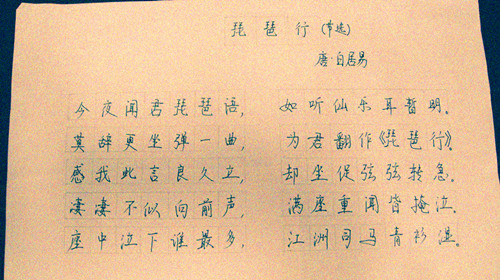 琵琶行(节选)
唐·白居易
今夜闻君琵琶语，如听仙乐耳暂明。
莫辞更坐弹一曲，为君翻作《琵琶行》。
感我此言良久立，却坐促弦弦转急。
凄凄不似向前声，满座重闻皆掩泣。
座中泣下谁最多，江洲司马青衫湿。